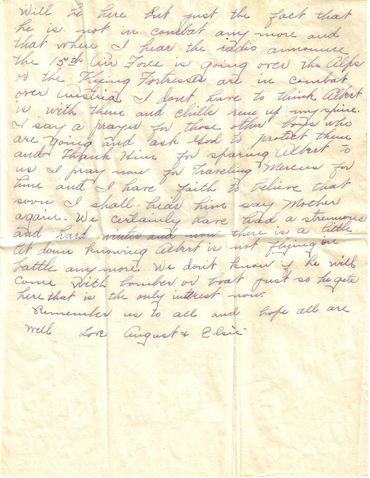 Will be here but just the fact that
he is not in combat any more and
that when I hear the radio announce
the 15th Air Force is going over the Alps
or the Flying Fortresses are in combat
over Austria I dont have to think Albert
is with them and chills run up my spine.
I say a prayer for those other boys who
are going and ask God to protect them
and thank Him for sparing Albert to
us I pray now for traveling Mercies for
him and I have faith to believe that
soon I shall hear him say Mother
again. We certainly have had a strenuous
and hard winter and now there is a little
let down knowing Albert is not flying in
battle any more. We don't know if he will
come with bomber or boat just so he gets
here that is the only interest now.
Remember us to all and hope all are
well Love August & Elsie